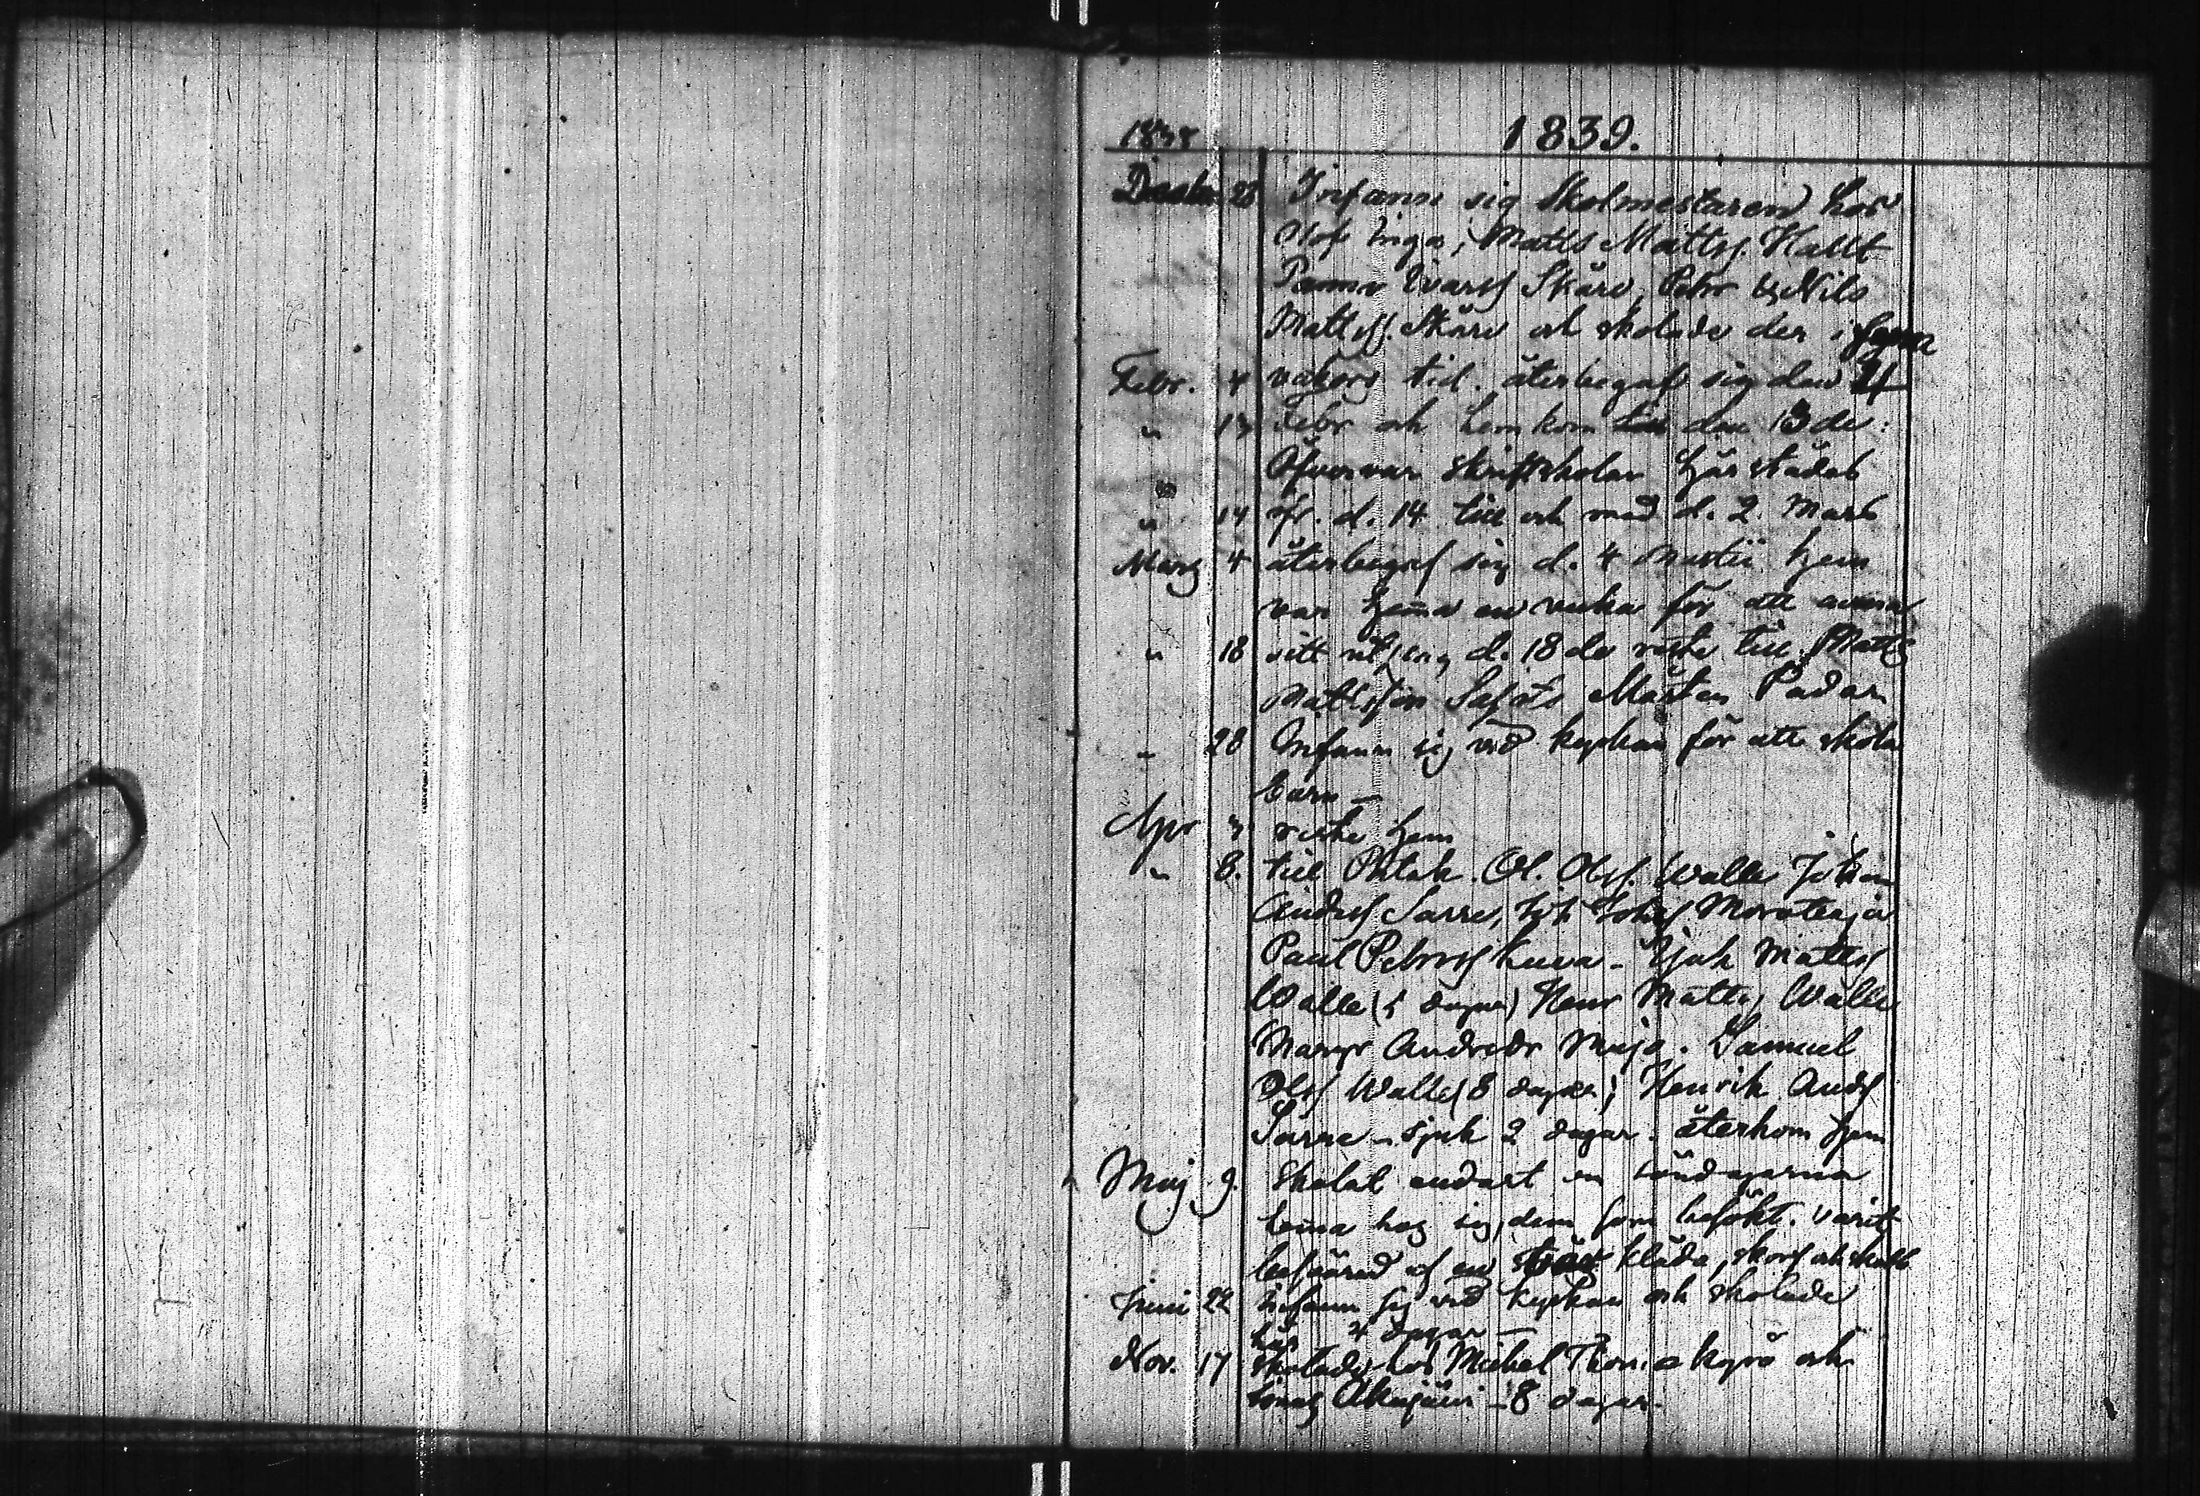 1838 1839.
Decembr 28 Infann sig Skolmestaren hos
Olof Inga, Matts Mattss. Hallt
Ivarss Skåre, Petr & Nils
Mattss. Skåre och skolade der i fyra
Febr. 4 veckors tid. återbegaf sig den 4
" 13 Febr och hem kom den 13de:
Öfvervar skriftskolan härstädes
" 14 fr. d. 14 till och med d. 2 Mars
Mars 4 återbegaf sig d. 4 Martii hem
var hema en vecka för att
" 18 sitt d. 18de reste till Matts
Mattsson Mårten Padar
" 28 Infann sig vid kyrkan för att skola
barn –
Apr 3 reste hem
" 8. till Ol. Olss. Walle Johan
Andss Sarre, Joh Johss Morottaja
Paul Petrss Kuva – Sjuk Mattss
Walle (5 dagar) Henr Mattss Walle
Margr Andredr Maja. Samuel
Olss Walle (8 dagar) Henrik Andss
Sarre – sjuk 2 dagar. återkom hem
Maj 9. Skolat endast om söndagarna
hema hos sig dem som besökt. varit
besvärad af en svår klåda, skorf och skabb
Juni 22 Infann sig vid kyrkan och skolade
här 4 dagar –
Nov. 17 skolade hos Michel Thom a Kyrö och
Jonas Akujärvi – 8 dagar.